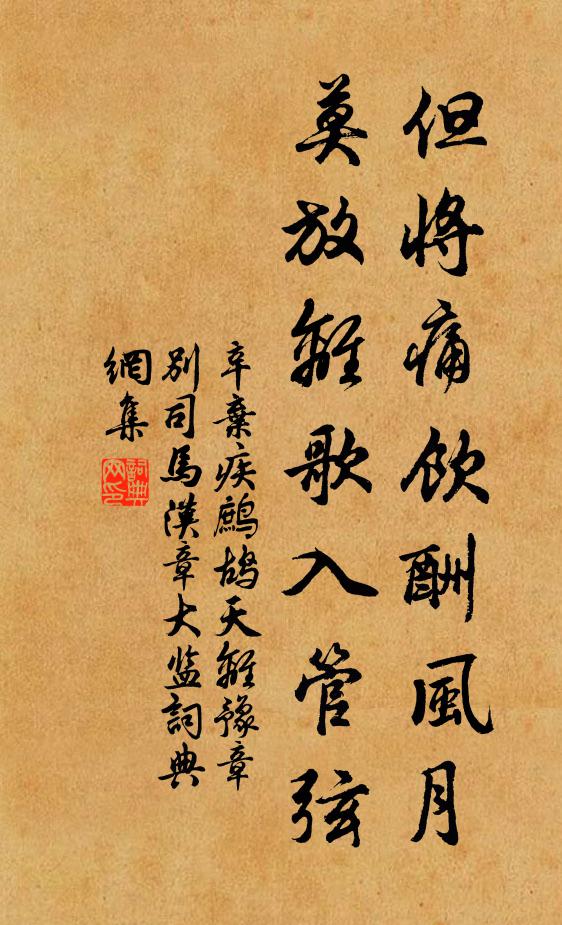 但將痛飲酬風月
莫放離歌入管弦
辛棄疾鷓鴣天離豫章
別司馬漢章大监詞典
網集
詞典
网印